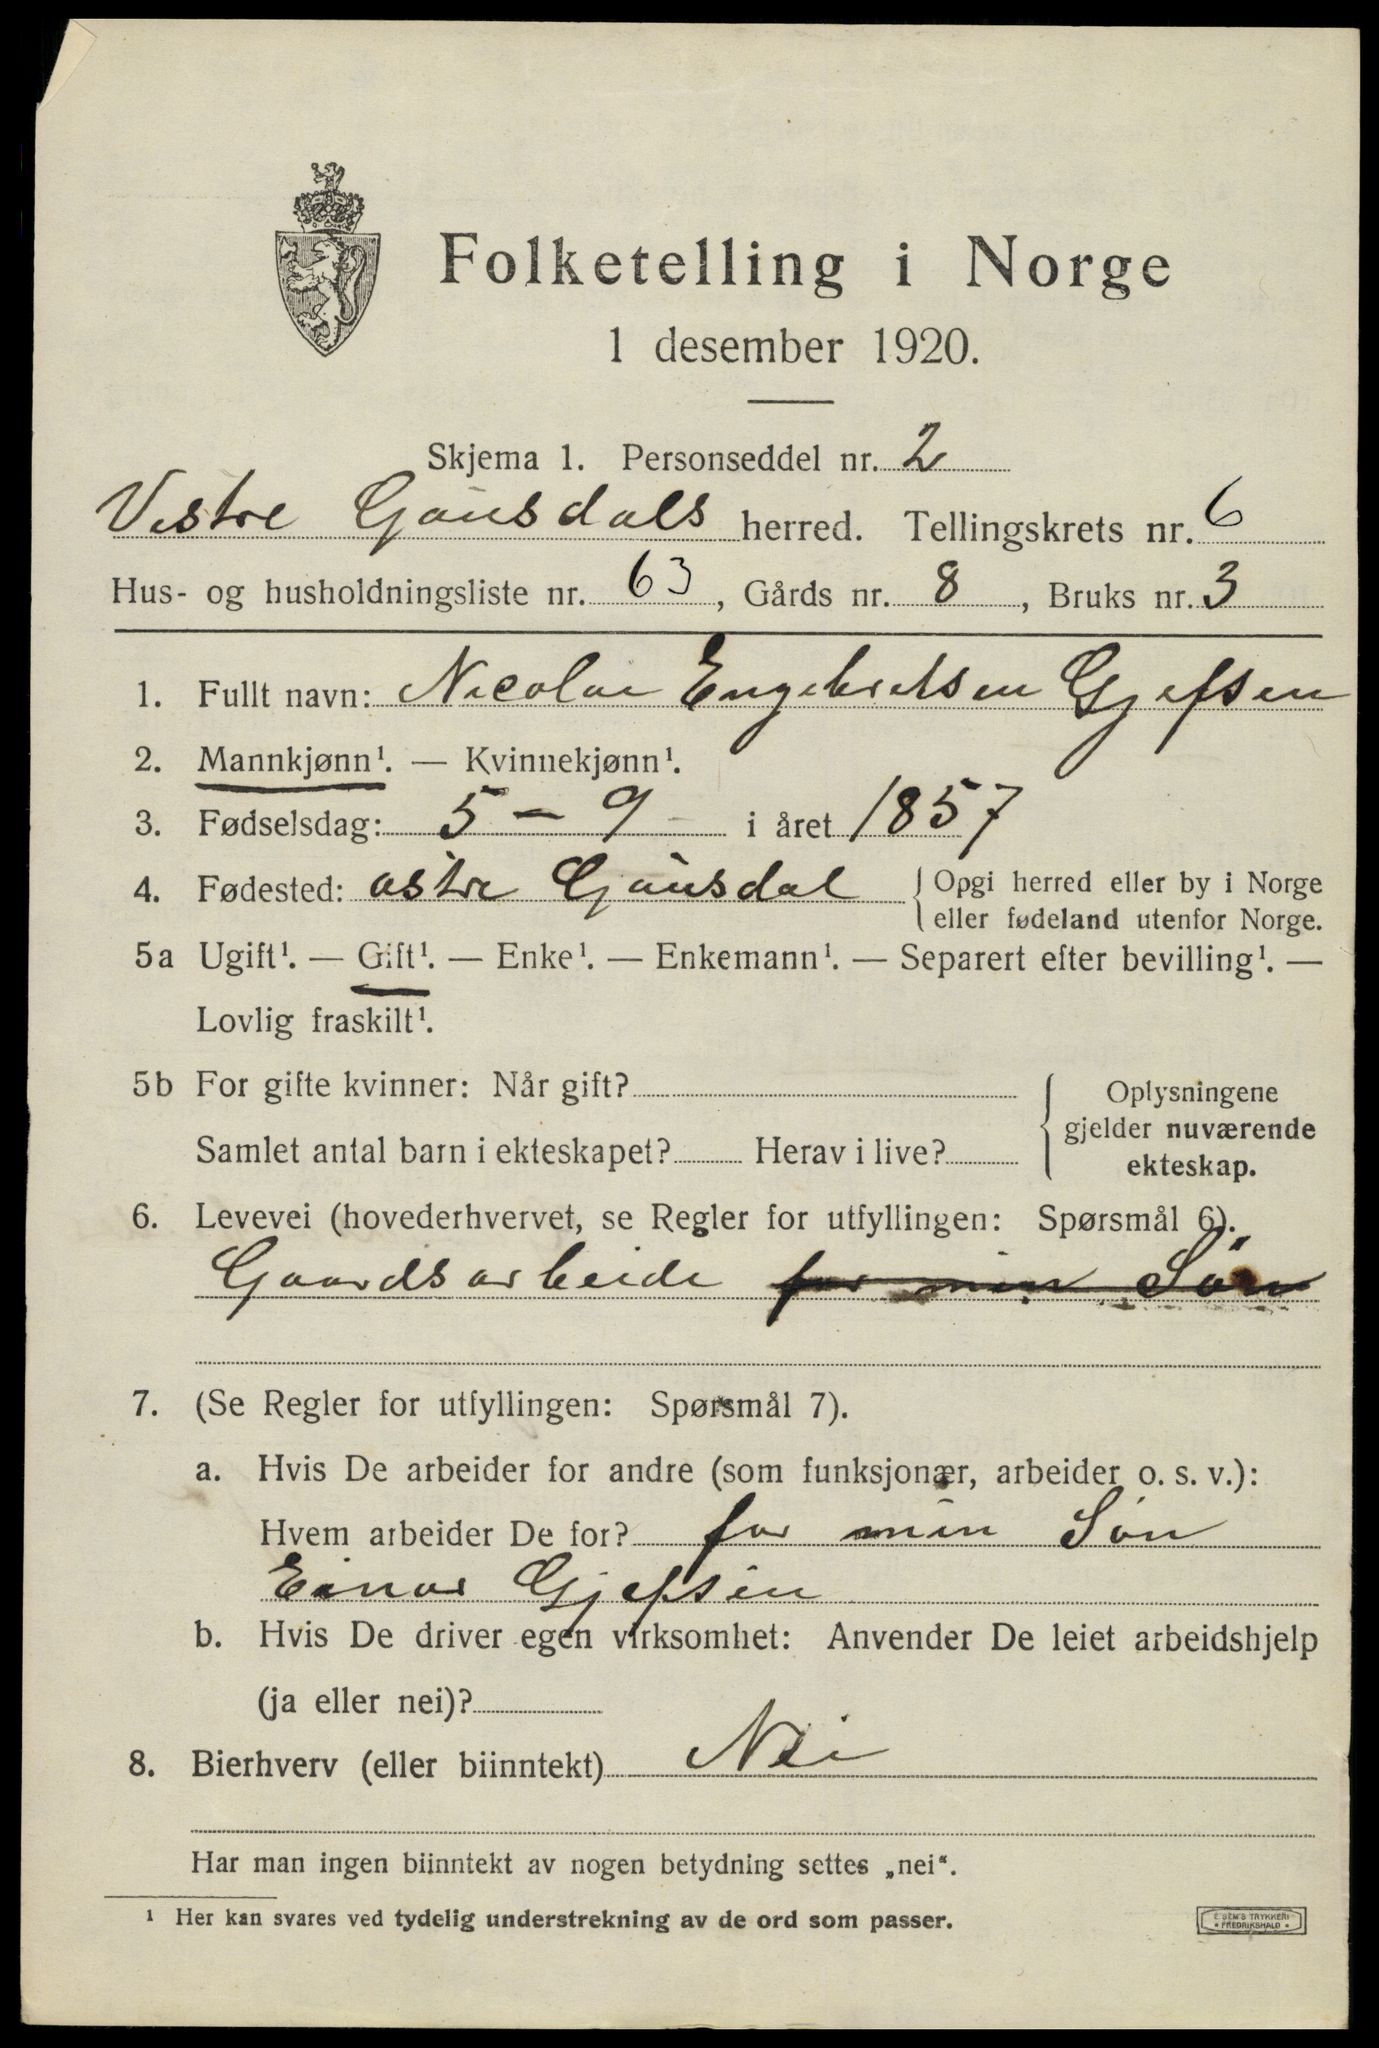 Folketelling i Norge
1 desember 1920.
Skjema 1. Personseddel nr. 2
Vestre Gausdals herred. Tellingskrets nr. 6
Hus- og husholdningsliste nr. 63, Gårds nr. 8, Bruks nr. 3
1. Fullt navn: Nicolai Engebretsen Gjefsen
2. Mannkjønn¹. — Kvinnekjønn¹.
3. Fødselsdag: 5 - 9 i året 1857
4. Fødested: østre Gausdal { Opgi herred eller by i Norge
eller fødeland utenfor Norge.
5a Ugift¹. — Gift¹. — Enke¹. — Enkemann¹. — Separert efter bevilling¹. —
Lovlig fraskilt¹.
5b For gifte kvinner: Når gift?
Samlet antal barn i ekteskapet? Herav i live?
{ Oplysningene
gjelder nuværende
ekteskap.
6. Levevei (hovederhvervet, se Regler for utfyllingen: Spørsmål 6).
Gaardsarbeide for min Søn
7. (Se Regler for utfyllingen: Spørsmål 7).
a. Hvis De arbeider for andre (som funksjonær, arbeider o. s. v.):
Hvem arbeider De for? for min Søn
Einar Gjefsen
b. Hvis De driver egen virksomhet: Anvender De leiet arbeidshjelp
(ja eller nei)?
8. Bierhverv (eller biinntekt) Nei
Har man ingen biinntekt av nogen betydning settes „nei“.
¹ Her kan svares ved tydelig understrekning av de ord som passer.
E SEM'S TRYKKERI
• FREDRIKSHALD •